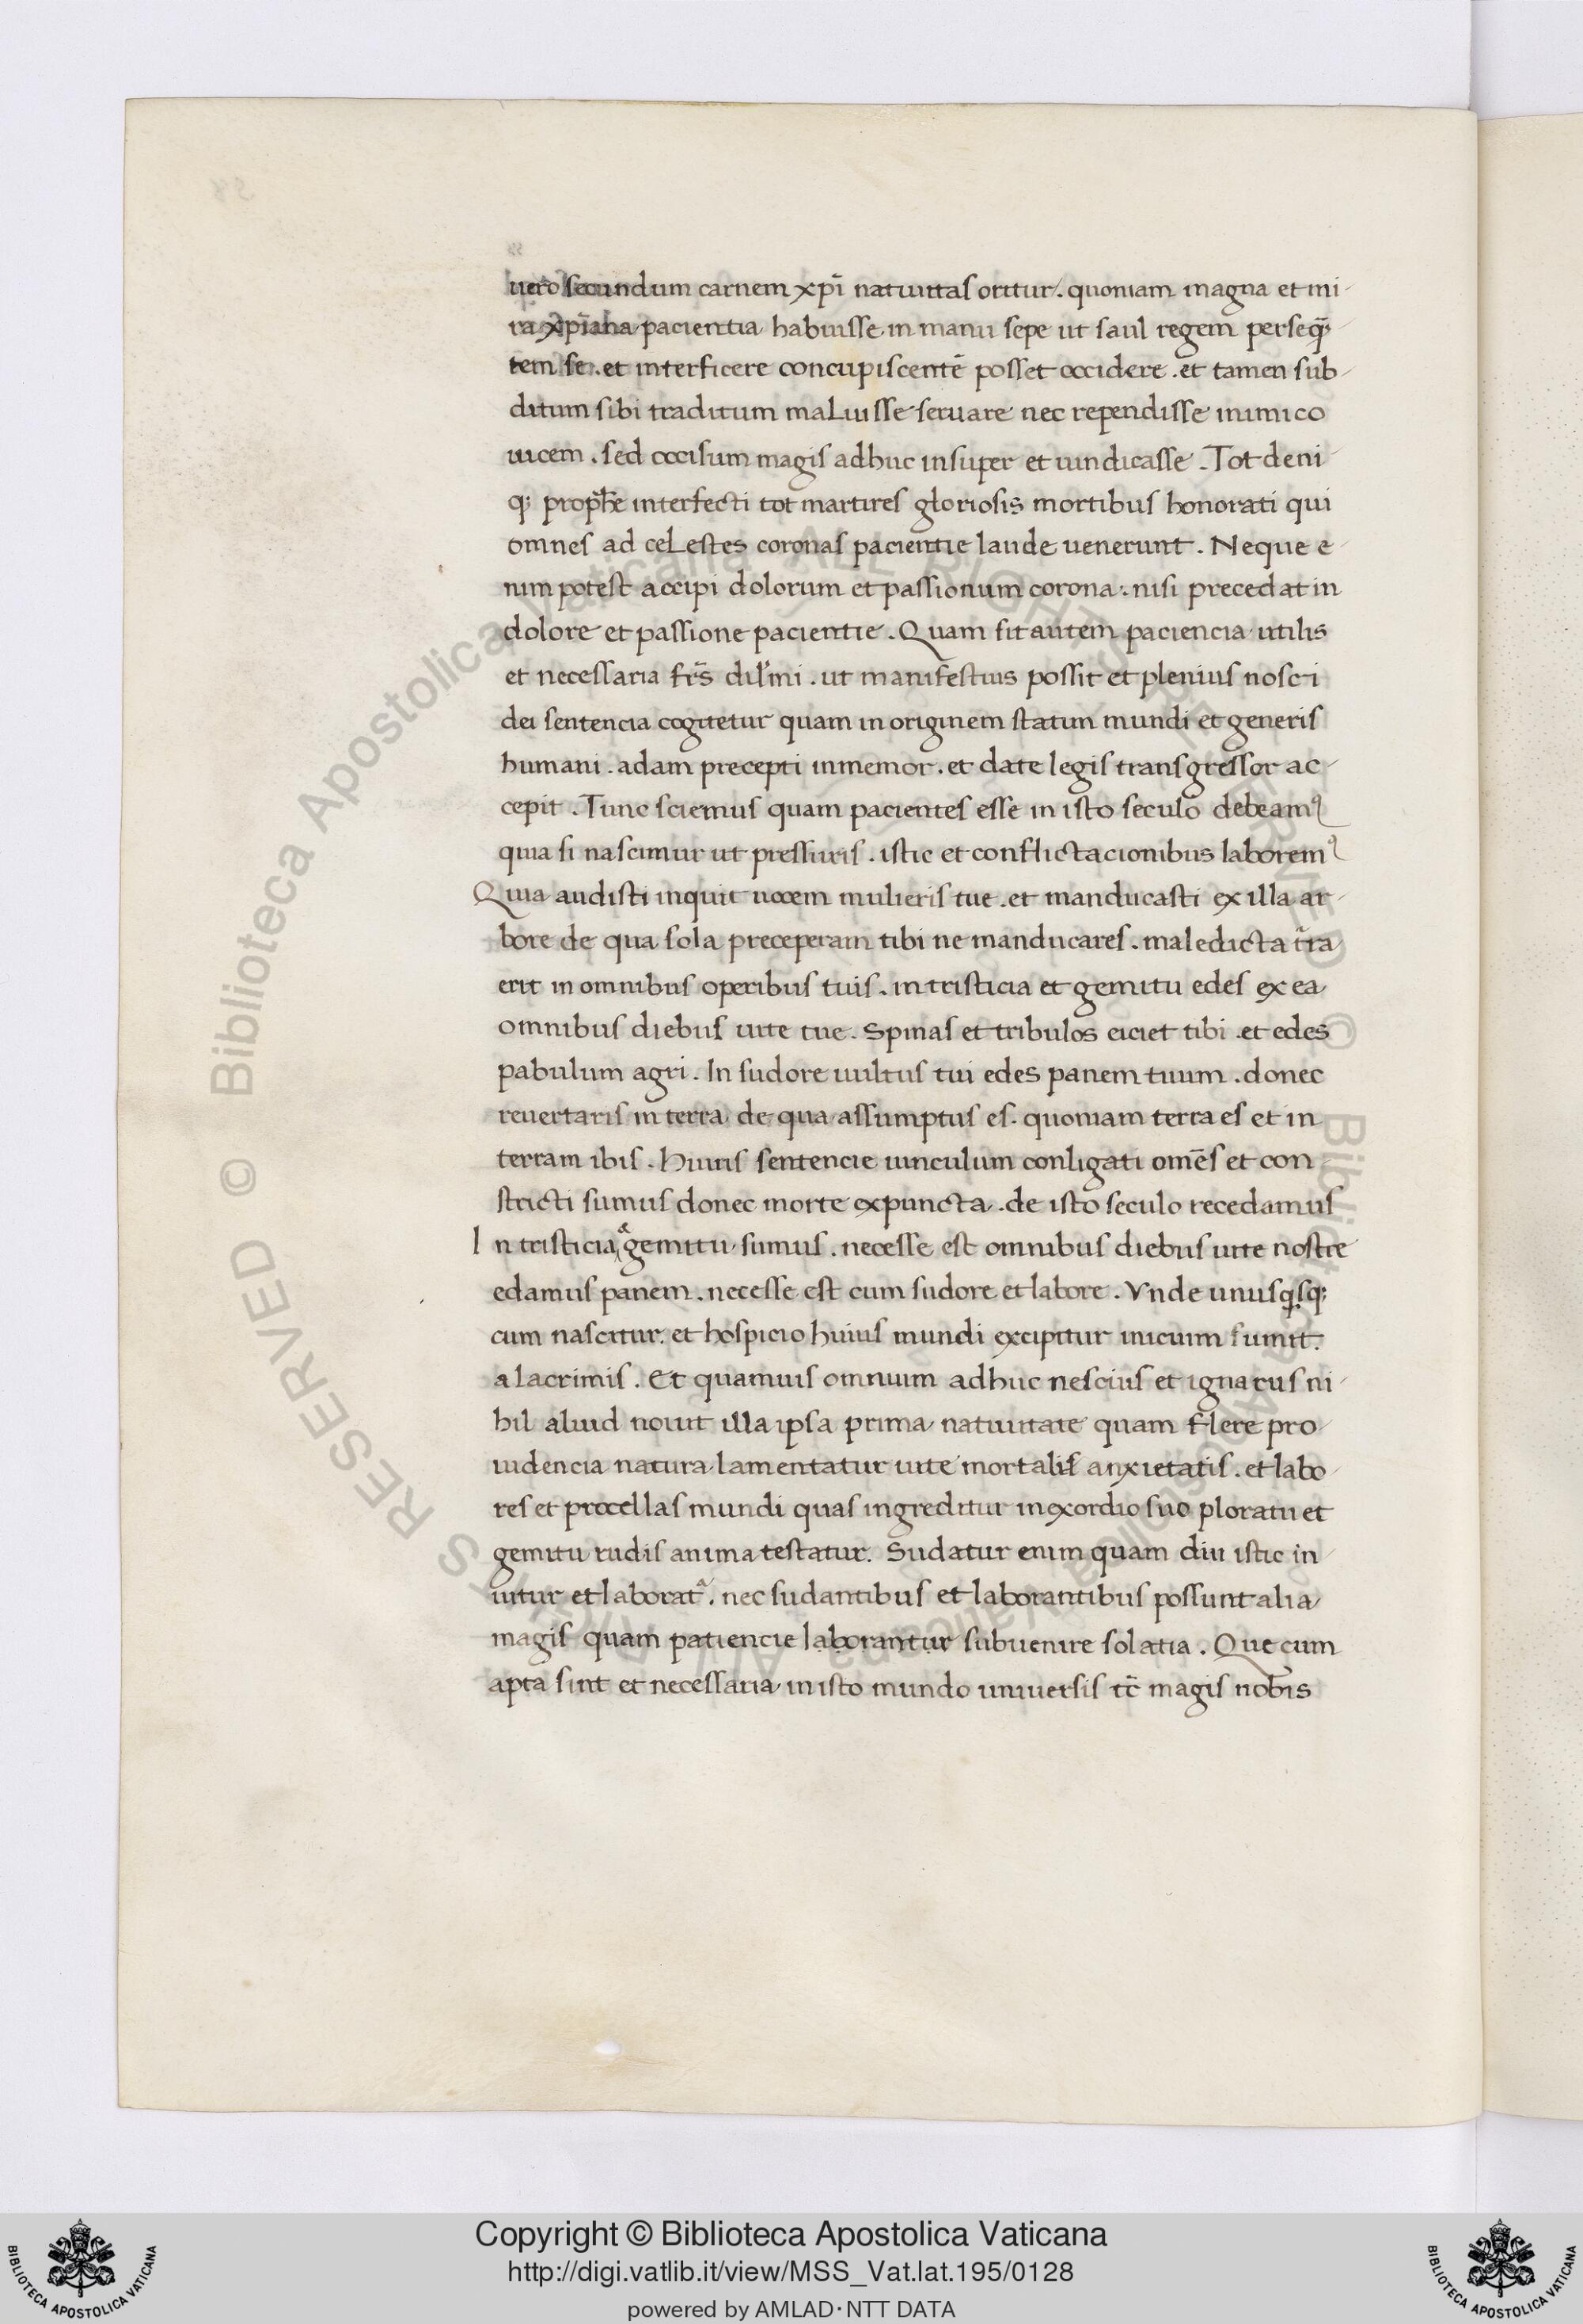 uero secundum carnem xp̄i natiuitas oritur. quoniam magna et mi-
ra xp̄iana paciencia habuisse in manu sepe ut saul regem perseq̄-
tem se. et interficere concupiscentē posset occidere. et tamen sub-
ditum sibi traditum maluisse seruare nec rependisse inimico
uicem. sed occisum magis adhuc insuper et uindicasse. Tot deni-
q; prophe interfecti tot martires gloriosis mortibus honorati qui
omnes ad celestes coronas pacientie laude uenerunt. Neque e-
nim potest accipi dolorum et passionum corona: nisi precedat in
dolore et passione pacientie. Quam sit autem paciencia utilis
et necessaria fr̄s dil'mi. ut manifestius possit et plenius nosci
dei sentencia cogitetur quam in originem statim mundi et generis
humani. adam precepti inmemor. et date legis transgressor ac-
cepit. Tunc sciemus quam pacientes esse in isto seculo debeamꝰ
quia si nascimur ut pressuris. istic et conflictacionibus laboremꝰ
Quia audisti inquit uocem mulieris tue. et manducasti ex illa ar-
bore de qua sola preceperam tibi ne manducares. maledicta t̄ra
erit in omnibus operibus tuis. in tristicia et gemitu edes ex ea
omnibus diebus uite tue. Spinas et tribulos eiciet tibi. et edes
pabulum agri. In sudore uultus tui edes panem tuum. donec
reuertaris in terra de qua assumptus es. quoniam terra es et in
terram ibis. Huius sentencie uinculum conligati omēs et con-
stricti sumus donec morte expuncta. de isto seculo recedamus
In tristicia & gemitu sumus. necesse est omnibus diebus uite nostre
edamus panem. necesse est cum sudore et labore. Vnde unusqisq;
cum nascitur. et hospicio huius mundi excipitur inicium sumit.
a lacrimis. Et quamuis omnium adhuc nescius et ignarus ni-
hil aliud nouit illa ipsa prima natiuitate quam flere pro-
uidencia natura lamentatur uite mortalis anxietatis. et labo-
res et procellas mundi quas ingreditur in exordio suo ploratu et
gemitu rudis anima testatur. Sudatur enim quam diu istic in-
uitur et laborat᷑. nec sudantibus et laborantibus possunt alia
magis quam patiencie laborantur subuenire solatia. Que cum
apta sint et necessaria in isto mundo uniuersis tc̄ magis nobis
Copyright © Biblioteca Apostolica Vaticana
http://digi.vatlib.it/view/MSS_Vat.lat.195/0128
powered by AMLAD·NTT DATA
BIBLIOTECA APOSTOLICA VATICANA
BIBLIOTECA APOSTOLICA VATICANA